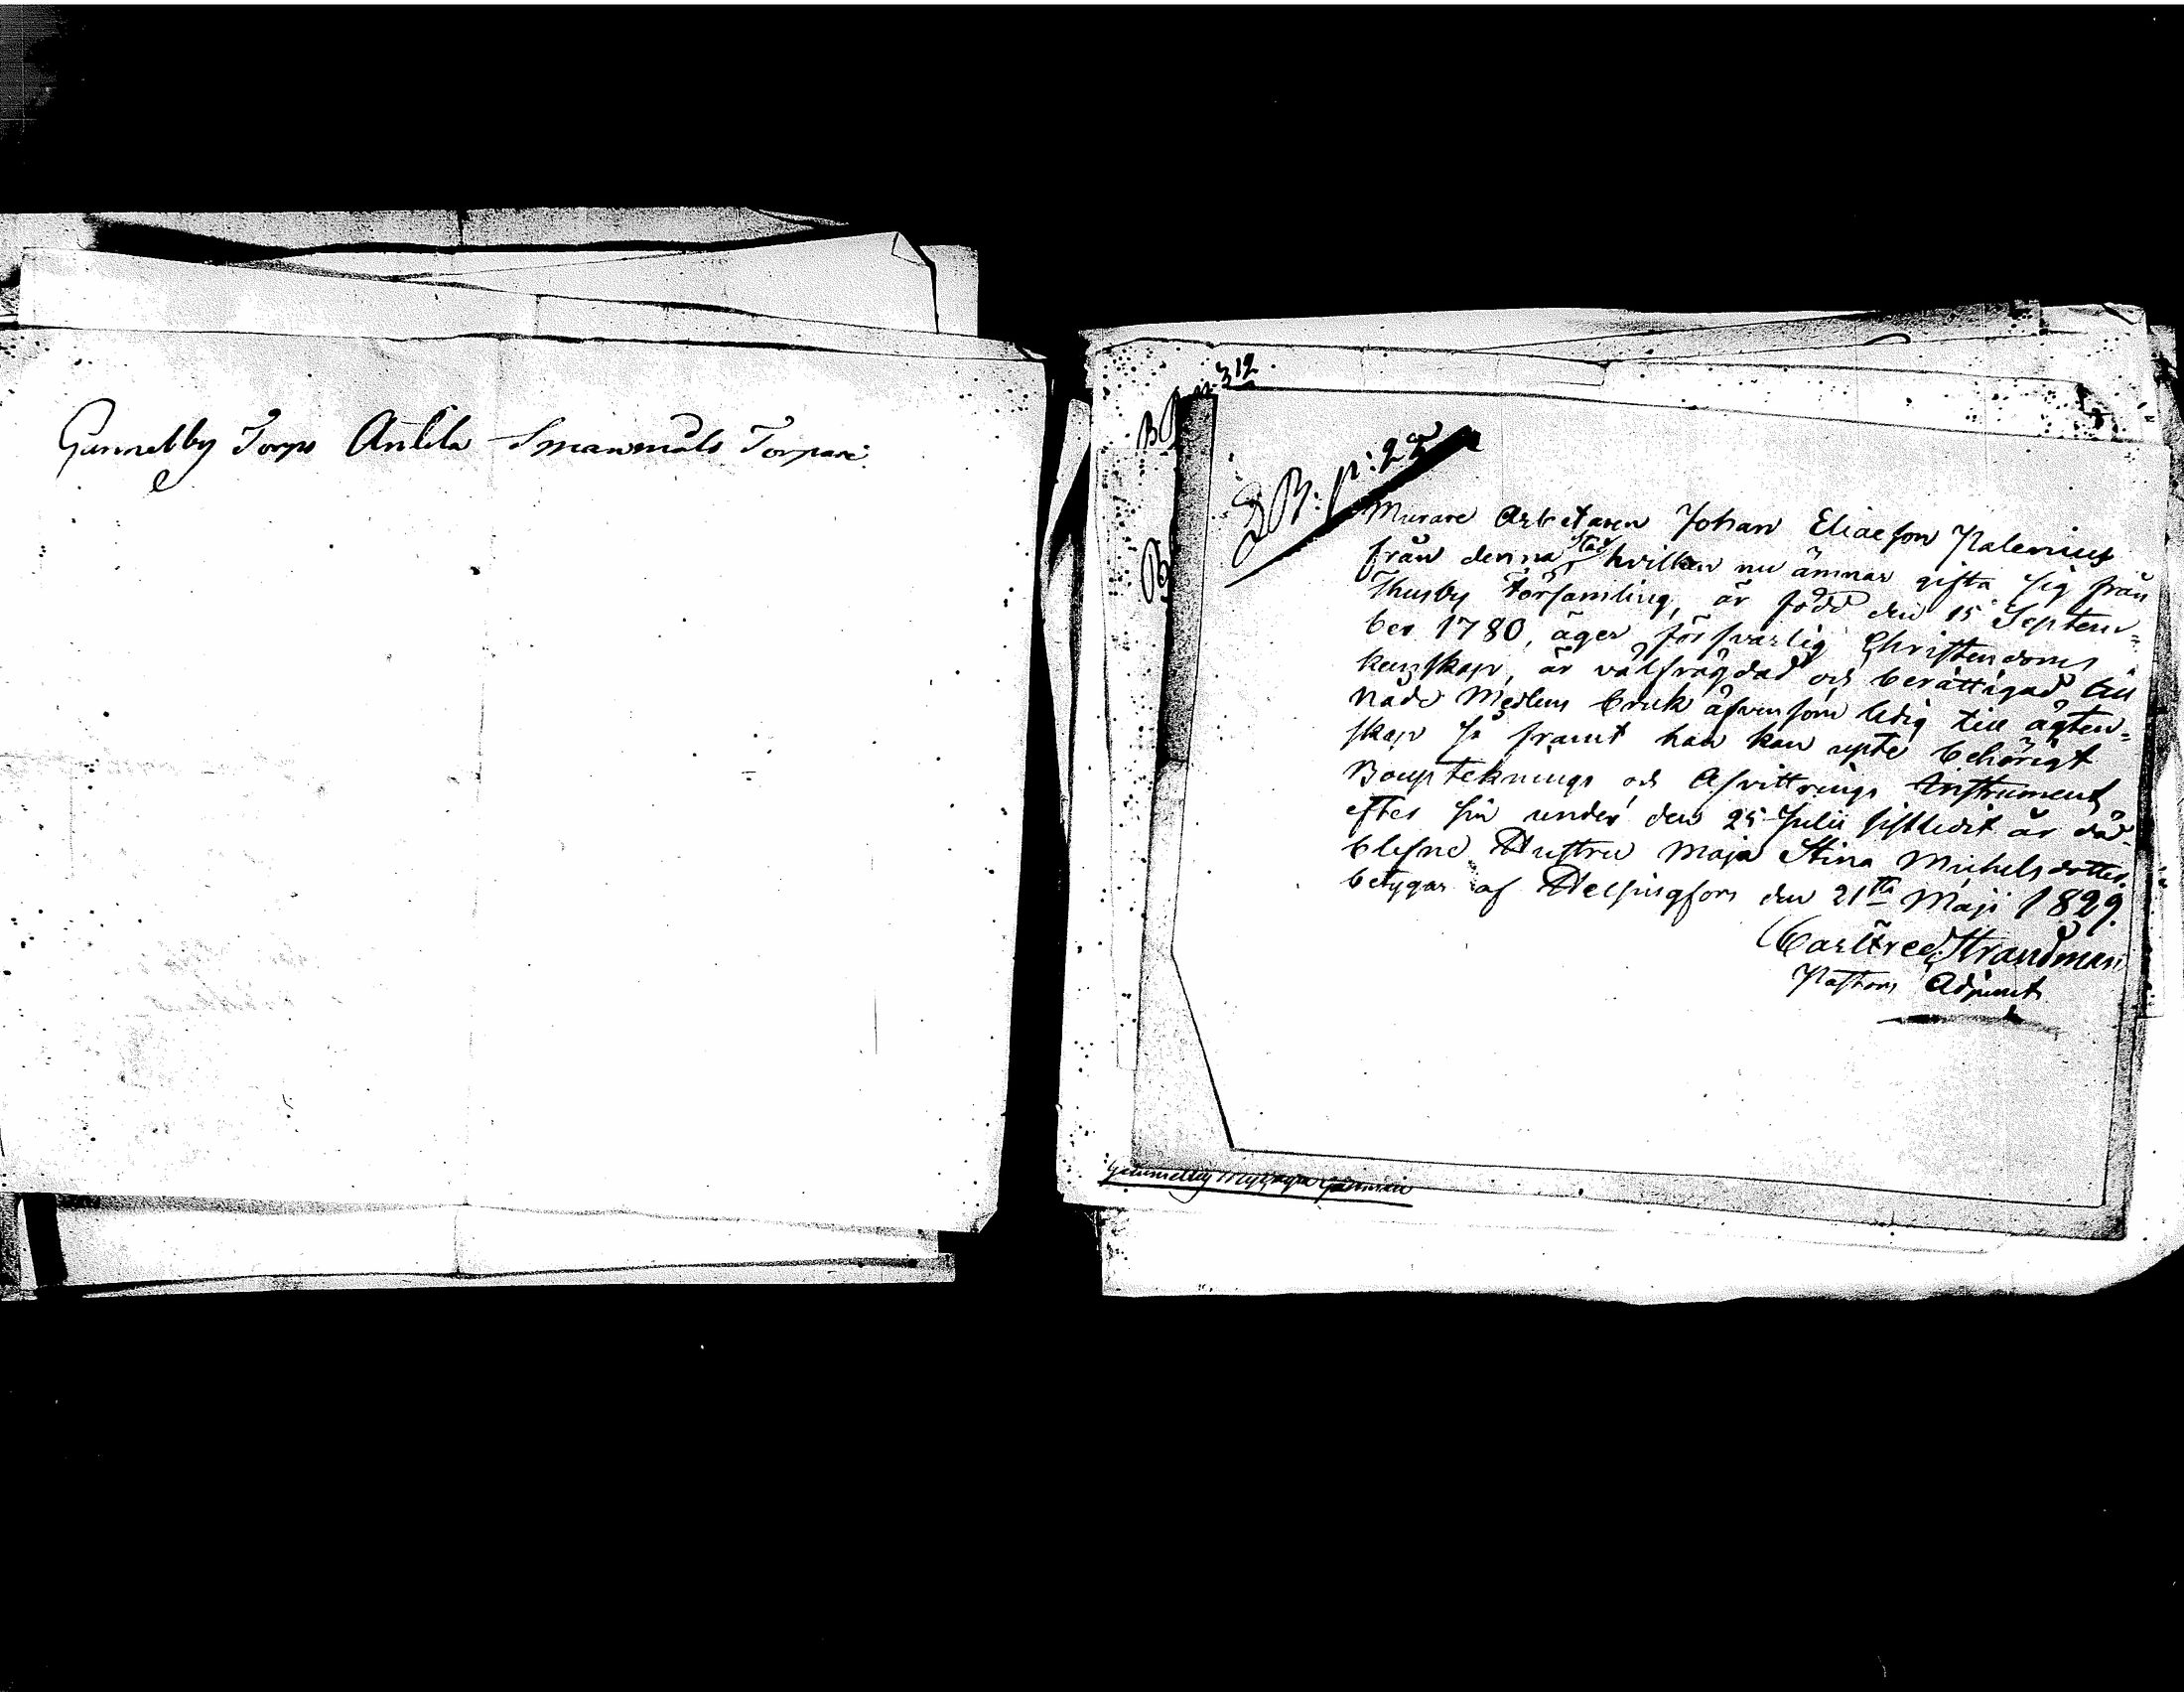 Gunnelby Torps Anttila Torpare
312
B
SB: p: 22
B
Murare Arbetaren Johan Eliaeson Palenius
från denna Stad hvilken nu ämnar gifta sig från
Thusby Församling, är född den 15 Septem=
ber 1780, äger försvarlig Christendoms
kunskap, är välfrägdad och berättigad till
Nåde Medlens bruk äfvensom ledig till ägten=
skap så framt han kan upte behörigt
Boupteknings och Afvittrings Instrument
efter sin under den 25 Julii sistledit år död=
blefne Hustru Maja Stina Michelsdotter.
betygar af Helsingfors den 21ta Maji 1829.
Carl Fred: Strandman
Pastors Adjunct